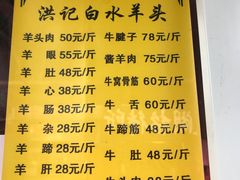 洪记白水羊头
羊头肉 50元/斤 牛腱子 78元/斤
羊 眼 55元/斤 酱羊肉 75元/斤
羊 肚 48元/斤 牛窝骨筋 60元/斤
羊 心 38元/斤
羊 肠 38元/斤 牛 舌 60元/斤
羊 杂 28元/斤 牛蹄筋 48元/斤
羊 蹄 28元/斤 牛 肚 48元/斤
羊 肝 28元/斤